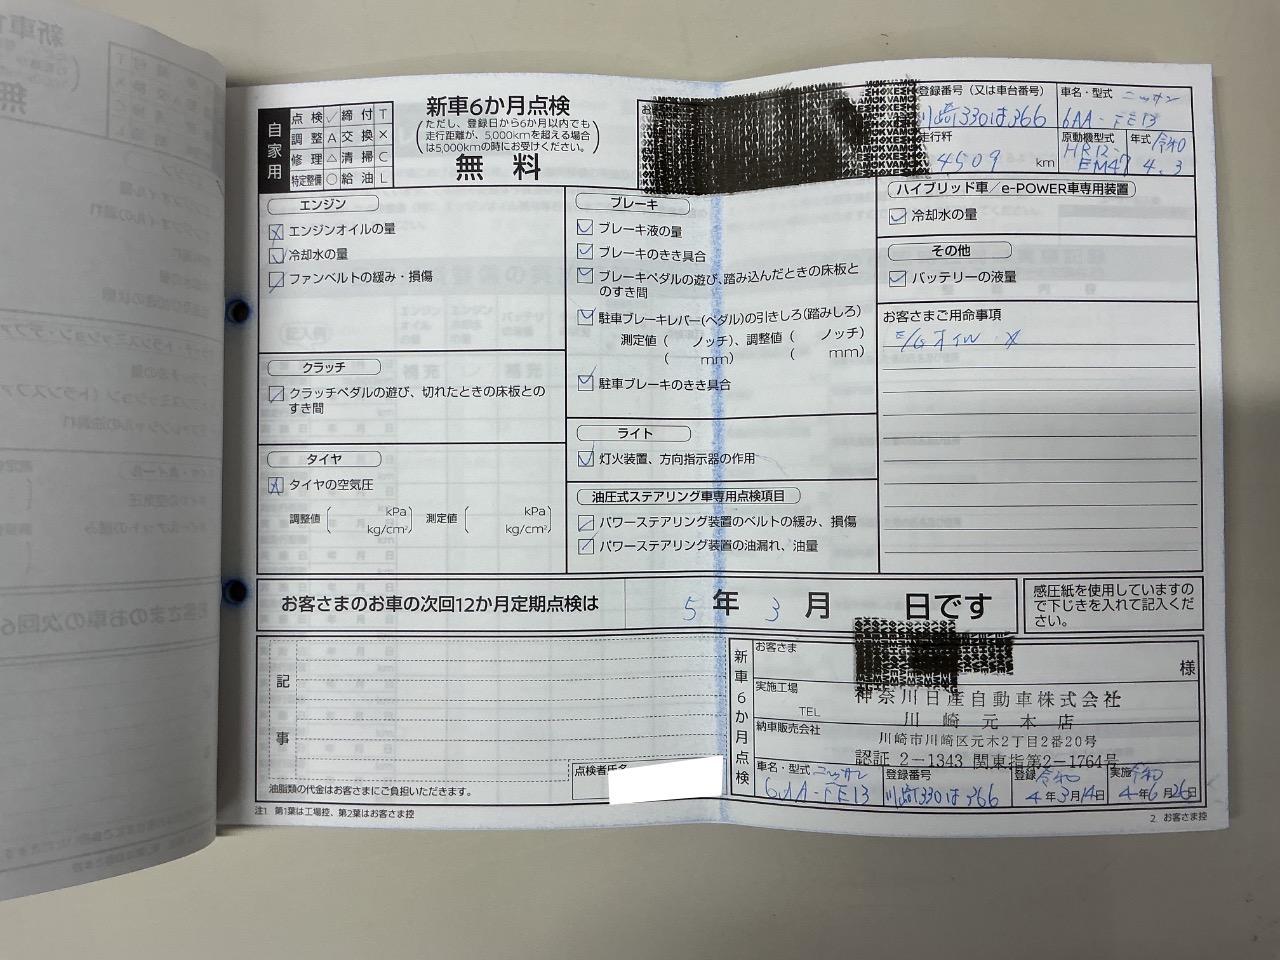 自家用
点検 ✓ 締付 T
調整 A 交換 ×
修理 △ 清掃 C
特定整備 ○ 給油 L
新車6か月点検
(ただし、登録日から6か月以内でも
走行距離が、5,000kmを超える場合
は5,000kmの時にお受けください。)
無料
登録番号(又は車台番号)
川崎330は366
車名・型式 ニッサン
6AA-FE13
走行粁
4509 km
原動機型式
HR12-
EM47
年式 令和
4.3
エンジン
エンジンオイルの量
冷却水の量
ファンベルトの緩み・損傷
クラッチ
クラッチペダルの遊び、切れたときの床板との
すき間
タイヤ
タイヤの空気圧
調整値( kPa kg/cm²) 測定値( kPa kg/cm²)
ブレーキ
ブレーキ液の量
ブレーキのきき具合
ブレーキペダルの遊び、踏み込んだときの床板と
のすき間
駐車ブレーキレバー(ペダル)の引きしろ(踏みしろ)
測定値( ノッチ)、調整値( ノッチ)
( mm) ( mm)
駐車ブレーキのきき具合
ライト
灯火装置、方向指示器の作用
油圧式ステアリング車専用点検項目
パワーステアリング装置のベルトの緩み、損傷
パワーステアリング装置の油漏れ、油量
ハイブリッド車/e-POWER車専用装置
冷却水の量
その他
バッテリーの液量
お客さまご用命事項
E/Gオイル ×
お客さまのお車の次回12か月定期点検は 5年 3月 日です
感圧紙を使用していますの
で下じきを入れて記入くだ
さい。
記事
点検者氏名
油脂類の代金はお客さまにご負担いただきます。
新車6か月点検
お客さま 様
実施工場
TEL
納車販売会社
神奈川日産自動車株式会社
川崎元木店
川崎市川崎区元木2丁目2番20号
認証 2-1343 関東指第2-1764号
車名・型式 ニッサン
6AA-FE13
登録番号
川崎330は366
登録 令和
4年3月14日
実施 令和
4年6月26日
注1 第1葉は工場控、第2葉はお客さま控
2. お客さま控